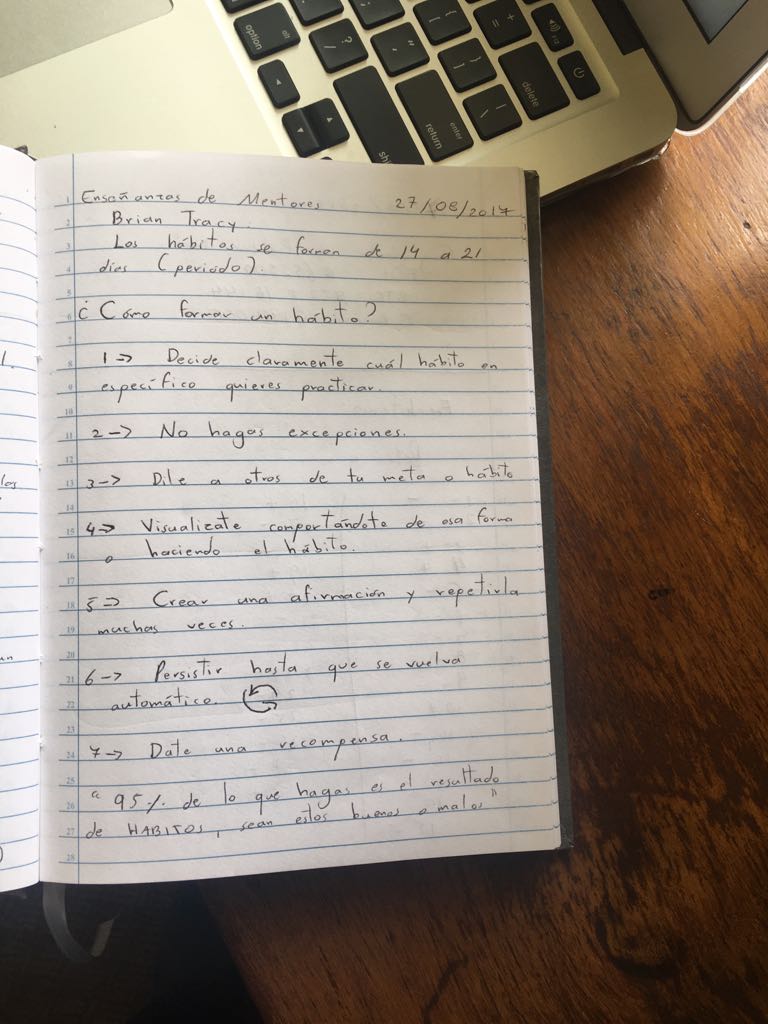 option
alt
? /
" '
{ [
} ]
+ =
| \
delete
enter
return
shi
Enseñanzas de Mentores 27/08/2017
Brian Tracy.
Los hábitos se forman de 14 a 21
dias (periodo).
¿Cómo formar un hábito?
1 → Decide claramente cuál hábito en
específico quieres practicar.
2 → No hagas excepciones.
3 → Dile a otros de tu meta o hábito
4 → Visualizate comportándote de esa forma
o haciendo el hábito.
5 → Crear una afirmación y repetirla
muchas veces.
6 → Persistir hasta que se vuelva
automático.
7 → Date una recompensa.
"95% de lo que hagas es el resultado
de HABITOS, sean estos buenos o malos"